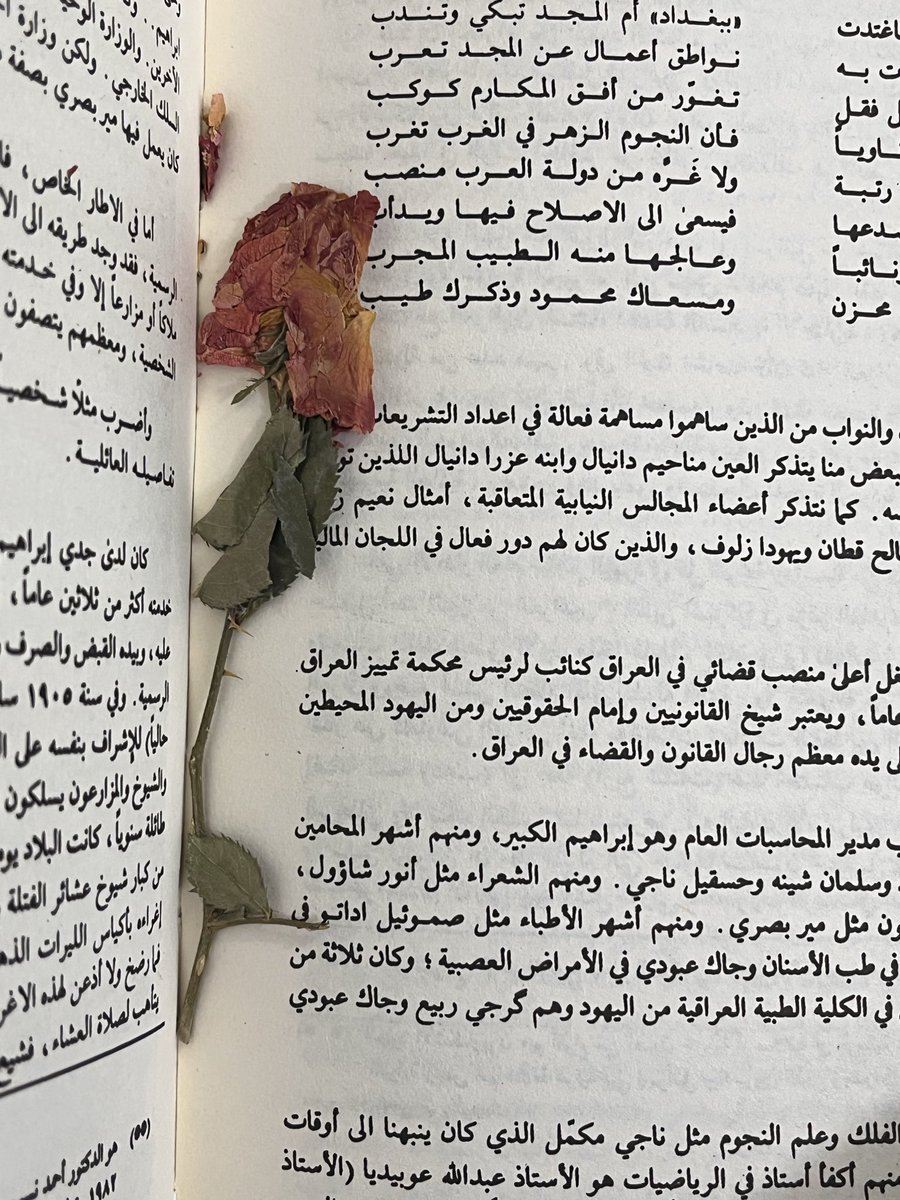 «ببغداد» أم المجد تبكي وتندب
به نواطق أعمال عن المجد تعرب
فقل تغوّر من أفق المكارم كوكب
فأن النجوم الزهر في الغرب تغرب
رتبة ولا غَرَّه من دولة العرب منصب
فيسعىٰ الى الاصلاح فيها ويدأب
وعالجها منه الطبيب المجرب
محزن ومسعاك محمود وذكرك طيب
والنواب من الذين ساهموا مساهمة فعالة في اعداد التشريعات
منا يتذكر العين مناحيم دانيال وابنه عزرا دانيال اللذين
كما نتذكر أعضاء المجالس النيابية المتعاقبة، أمثال نعيم
قطان ويهودا زلوف، والذين كان لهم دور فعال في اللجان المالية
أعلىٰ منصب قضائي في العراق كنائب لرئيس محكمة تمييز العراق
عاماً، ويعتبر شيخ القانونيين وإمام الحقوقيين ومن اليهود المحيطين
يده معظم رجال القانون والقضاء في العراق.
مدير المحاسبات العام وهو إبراهيم الكبير، ومنهم أشهر المحامين
وسلمان شينه وحسقيل ناجي. ومنهم الشعراء مثل أنور شاؤول،
مثل مير بصري. ومنهم أشهر الأطباء مثل صموئيل اداتو في
في طب الأسنان وجاك عبودي في الأمراض العصبية؛ وكان ثلاثة من
في الكلية الطبية العراقية من اليهود وهم گرجي ربيع وجاك عبودي
الفلك وعلم النجوم مثل ناجي مكمّل الذي كان ينبهنا الى أوقات
أكفأ أستاذ في الرياضيات هو الأستاذ عبدالله عوبيديا (الأستاذ
ابراهيم.
الآخرين. والوزارة
الملك الخارجي. ولكن وزارة
كان يعمل فيها مير بصري بصفة
أما في الاطار الخاص،
الرسمية، فقد وجد طريقه الى
ملاكاً أو مزارعاً إلا وفي خدمته
الشخصية، ومعظمهم يتصفون
وأضرب مثلاً
تفاصيله العائلية.
كان لدىٰ جدي إبراهيم
خدمته أكثر من ثلاثين عاماً،
عليه، وبيده القبض والصرف
الرسمية. وفي سنة ١٩٠٥
حالياً) للإشراف بنفسه على
والشيوخ والمزارعون يسلكون
طائلة سنوياً، كانت البلاد
من كبار شيوخ عشائر الفتلة
إغراءه بأكياس الليرات
فما رضخ ولا أذعن لهذه
يتأهب لصلاة العشاء،
(٥٥) هو الدكتور أحمد
١٩٨٢